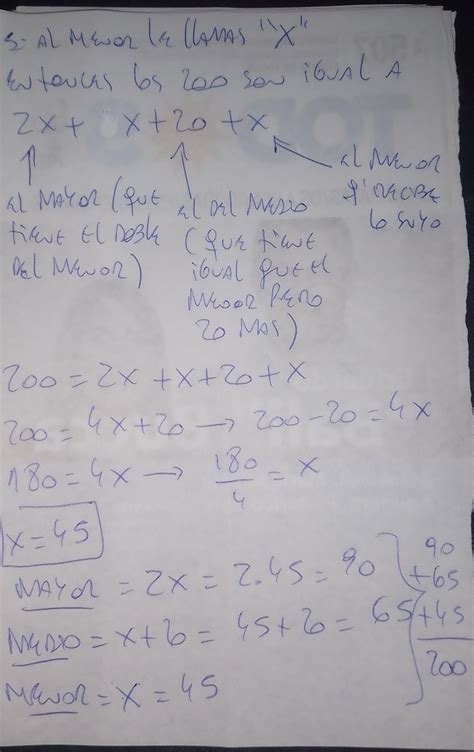 Si AL MENOR LE LLAMAS "X"
ENTONCES LOS 200 SON IGUAL A
2X + X+20 + X
EL MAYOR (QUE
TIENE EL DOBLE
DEL MENOR)
EL DEL MEDIO
(QUE TIENE
IGUAL QUE EL
MENOR PERO
20 MAS)
EL MENOR
q' RECIBE
LO SUYO
200 = 2X + X + 20 + X
200 = 4X + 20 → 200 - 20 = 4X
180 = 4X → 180/4 = X
X = 45
MAYOR = 2X = 2.45 = 90
MEDIO = X + 20 = 45 + 20 = 65
MENOR = X = 45
90
+65
+45
200